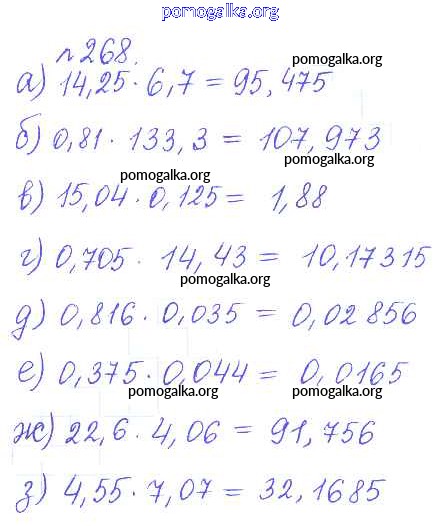 pomogalka.org
№268.
pomogalka.org
а) 14,25 · 6,7 = 95,475
б) 0,81 · 133,3 = 107,973
pomogalka.org
pomogalka.org
в) 15,04 · 0,125 = 1,88
г) 0,705 · 14,43 = 10,17315
pomogalka.org
д) 0,816 · 0,035 = 0,02856
е) 0,375 · 0,044 = 0,0165
pomogalka.org pomogalka.org
ж) 22,6 · 4,06 = 91,756
з) 4,55 · 7,07 = 32,1685
pomogalka.org